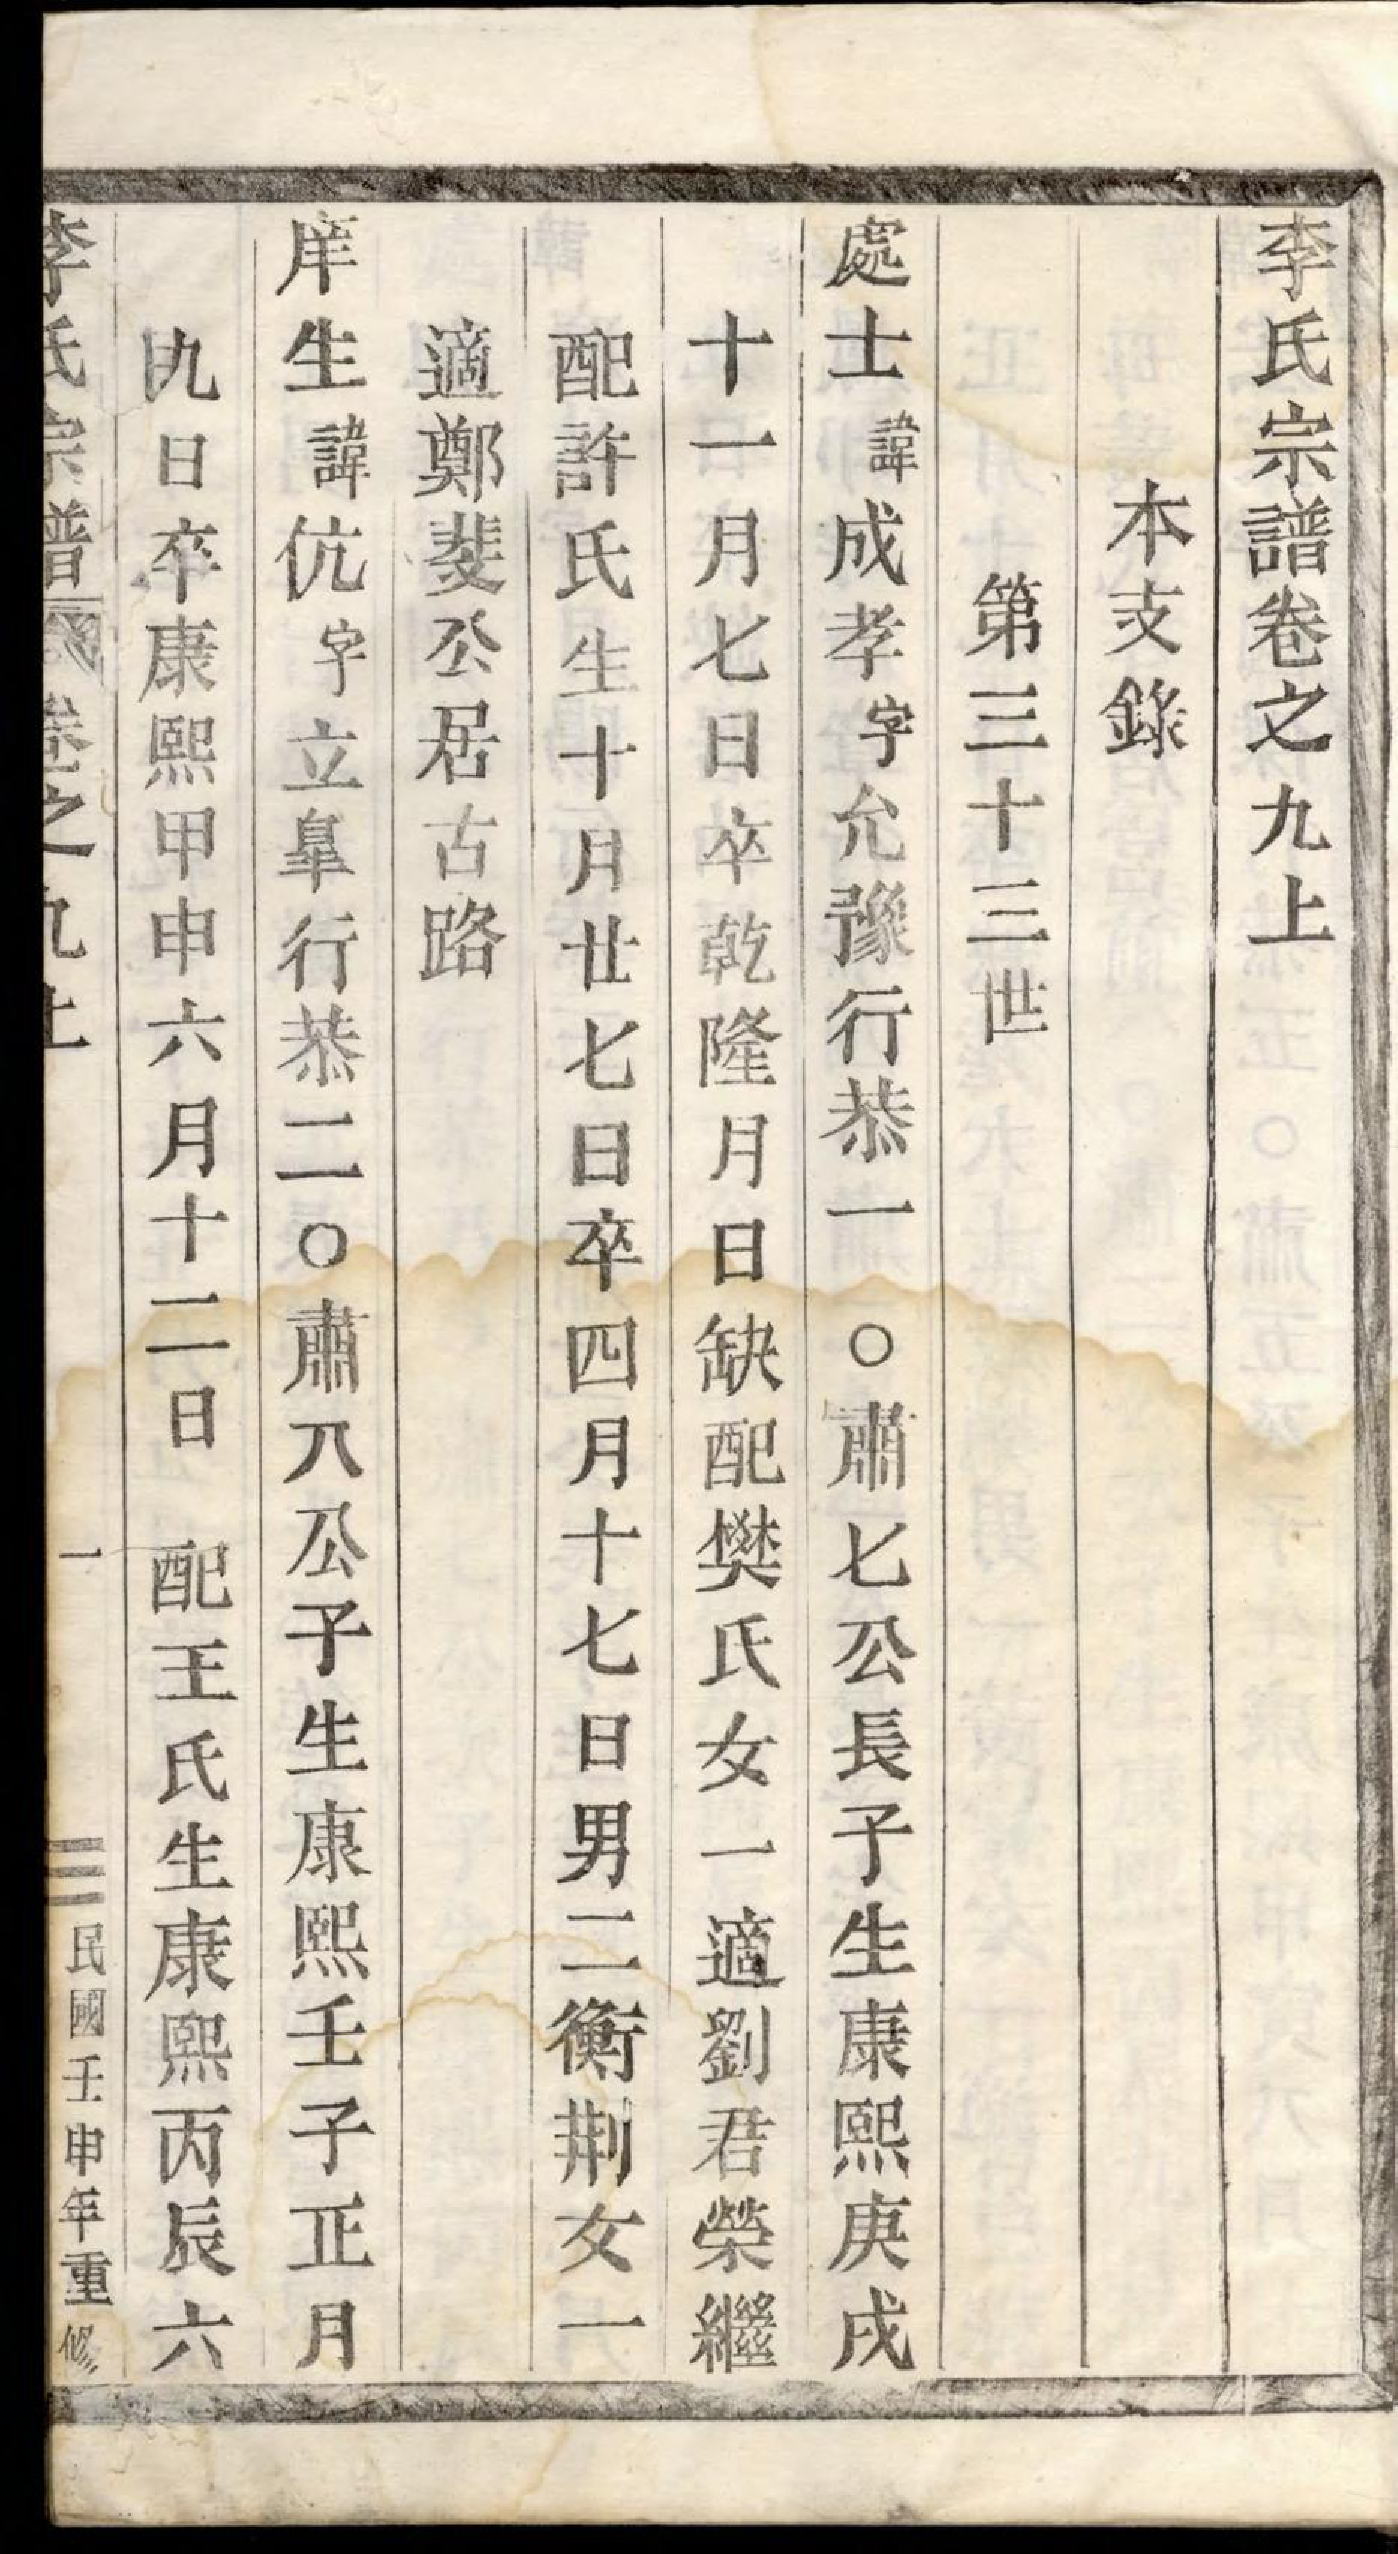 李氏宗譜卷之九上
本支錄
第三十三世
處士諱成孝字允豫行恭一○肅七公長子生康熙庚戌
十一月七日卒乾隆月日缺配樊氏女一適劉君榮繼
配許氏生十月廿七日卒四月十七日男二衡荆女一
適鄭斐公居古路
庠生諱伉字立臯行恭二○肅八公子生康熙壬子正月
九日卒康熙甲申六月十二日　配王氏生康熙丙辰六
李氏宗譜　卷之九上　一　民國壬申年重修